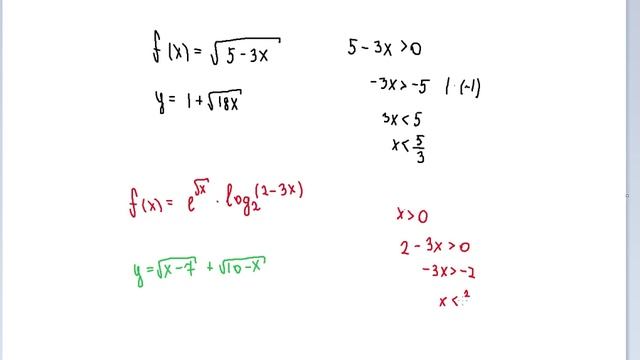 f(x) = √(5 - 3x)
y = 1 + √(18x)
5 - 3x > 0
-3x > -5 | · (-1)
3x < 5
x < 5/3
f(x) = e^√x · log₂(2 - 3x)
y = √(x - 7) + √(10 - x)
x > 0
2 - 3x > 0
-3x > -2
x < 2